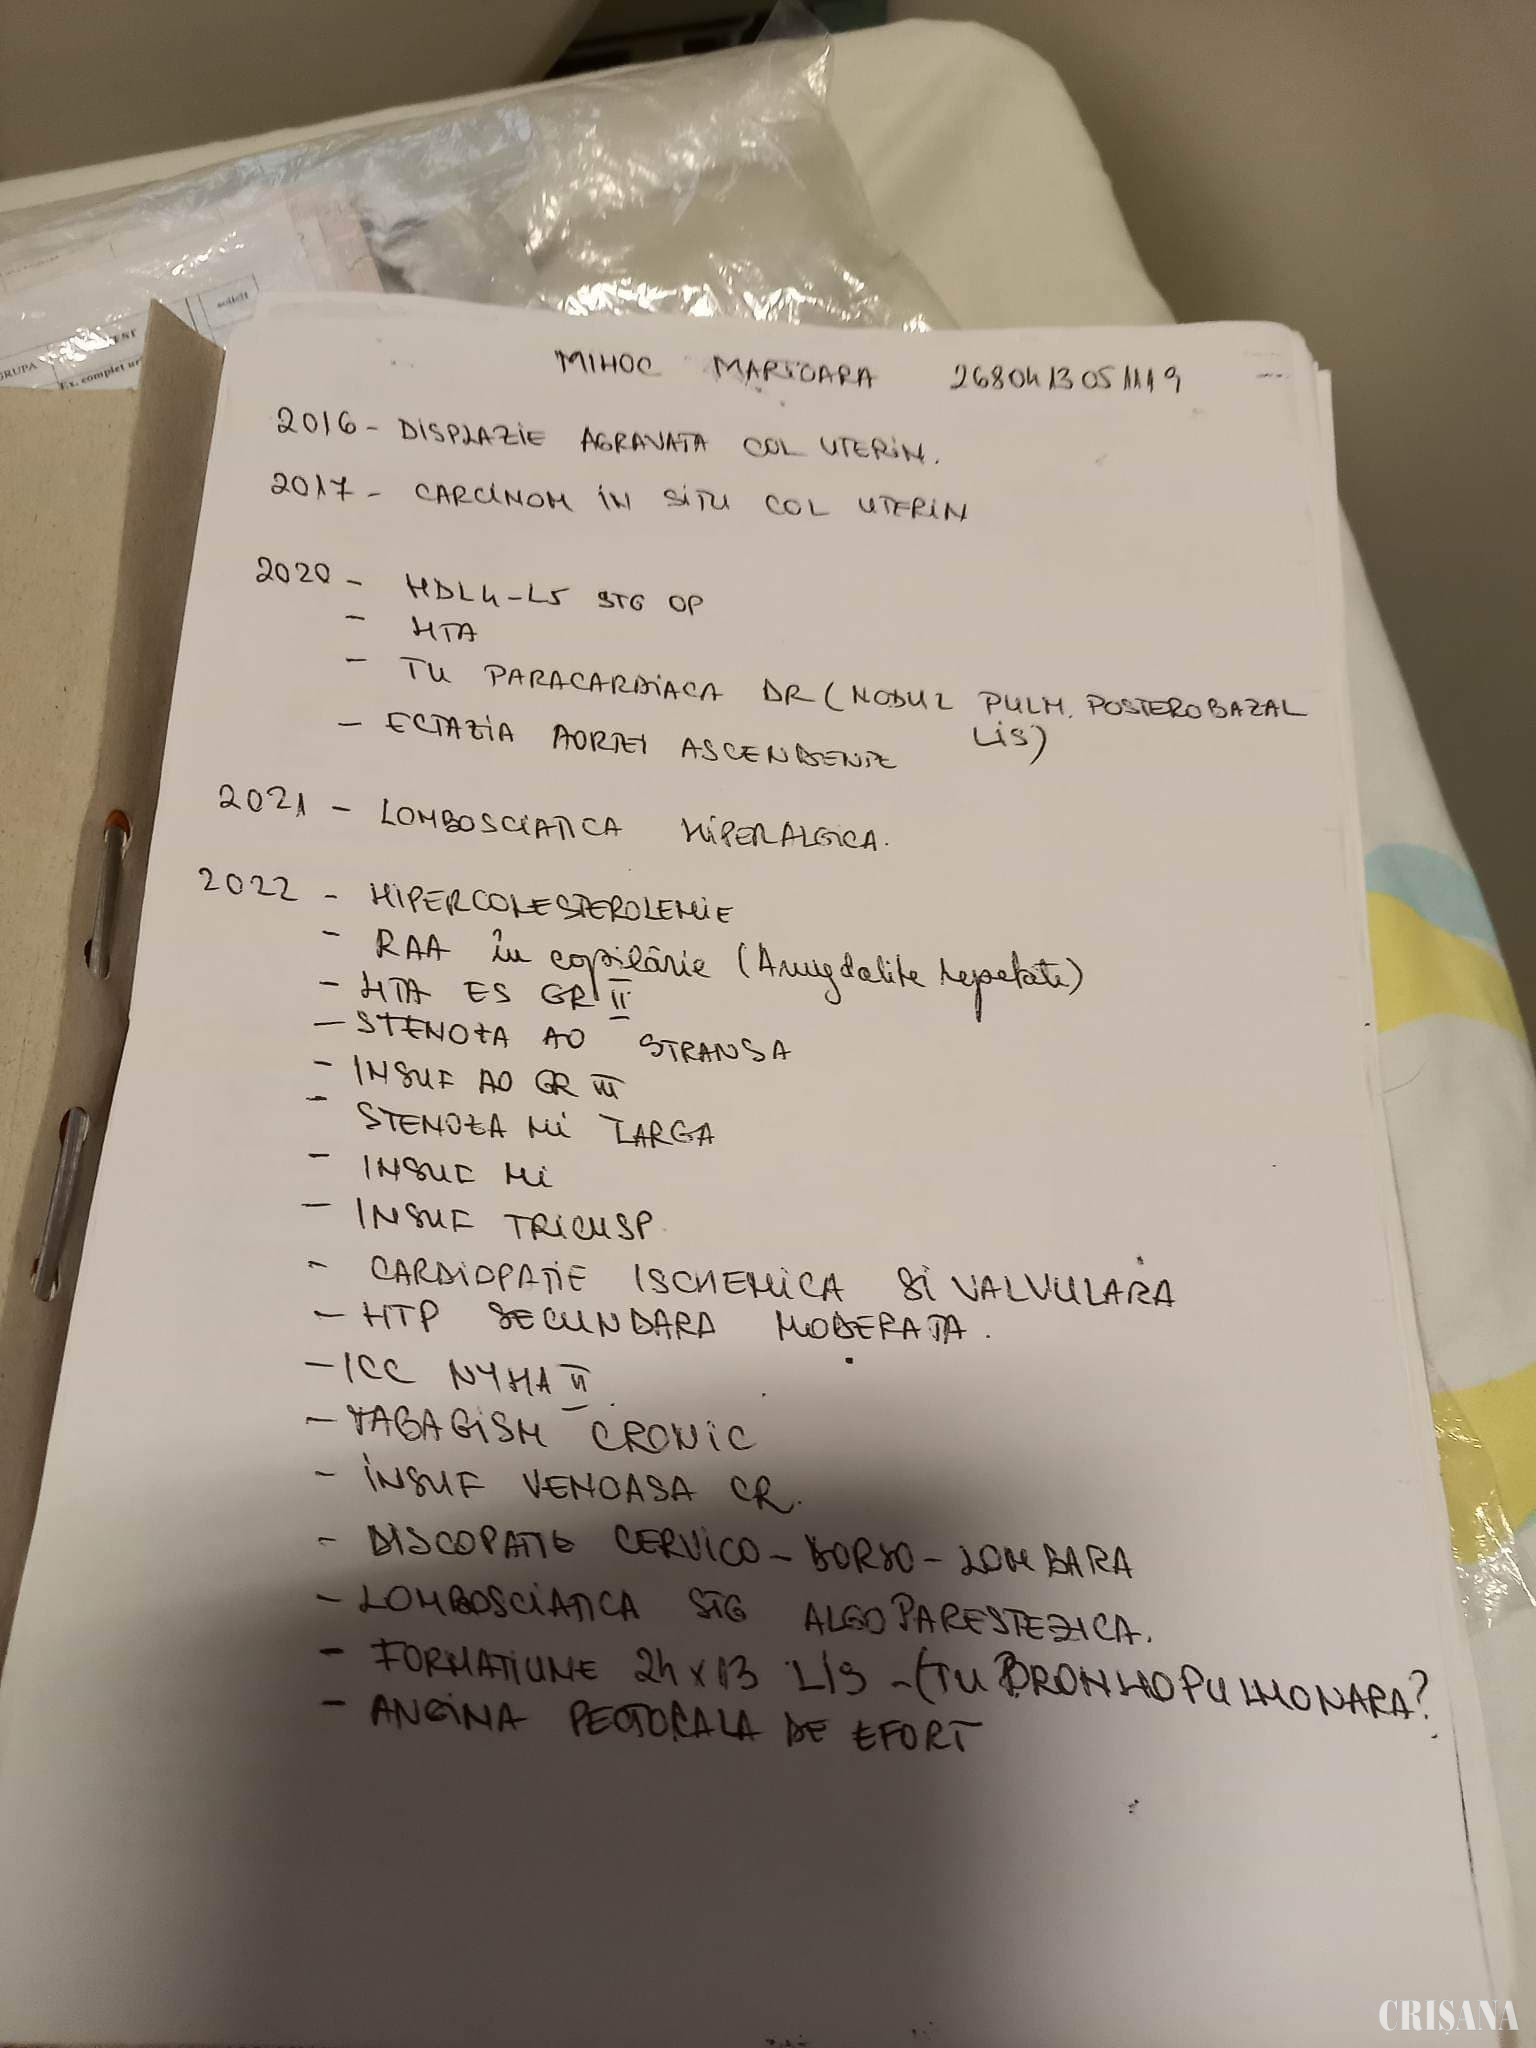 solicit
EST
GRUPA
Ex. complet ur
MIHOC MARIOARA 2680413051119
2016 - DISPLAZIE AGRAVATA COL UTERIN.
2017 - CARCINOM IN SITU COL UTERIN
2020 - HDL4-L5 STG OP
- HTA
- TU PARACARDIACA DR (NODUL PULM. POSTEROBAZAL
LIS)
- ECTAZIA AORTEI ASCENDENTE
2021 - LOMBOSCIATICA HIPERALGICA.
2022 - HIPERCOLESTEROLEMIE
- RAA în copilărie (Amigdalite repetate)
- HTA ES GR II
- STENOZA AO STRANSA
- INSUF AO GR III
- STENOZA MI LARGA
- INSUF MI
- INSUF TRICUSP.
- CARDIOPATIE ISCHEMICA SI VALVULARA
- HTP SECUNDARA MODERATA.
- ICC NYHA II
- TABAGISM CRONIC
- INSUF VENOASA CR.
- DISCOPATIE CERVICO-DORSO-LOMBARA
- LOMBOSCIATICA STG ALGOPARESTEZICA.
- FORMATIUNE 24x13 LIS - (TU BRONHOPULMONARA?
- ANGINA PECTORALA DE EFORT
CRIȘANA